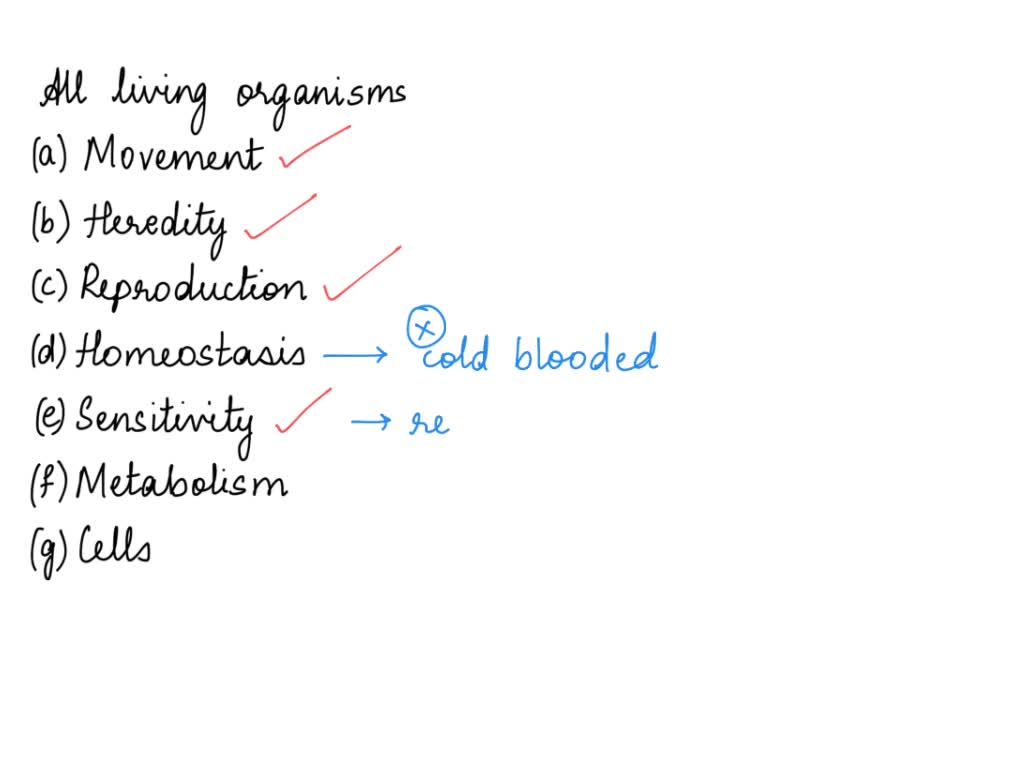 All living organisms
(a) Movement ✓
(b) Heredity ✓
(c) Reproduction ✓
(d) Homeostasis → ⓧ cold blooded
(e) Sensitivity ✓ → re
(f) Metabolism
(g) Cells